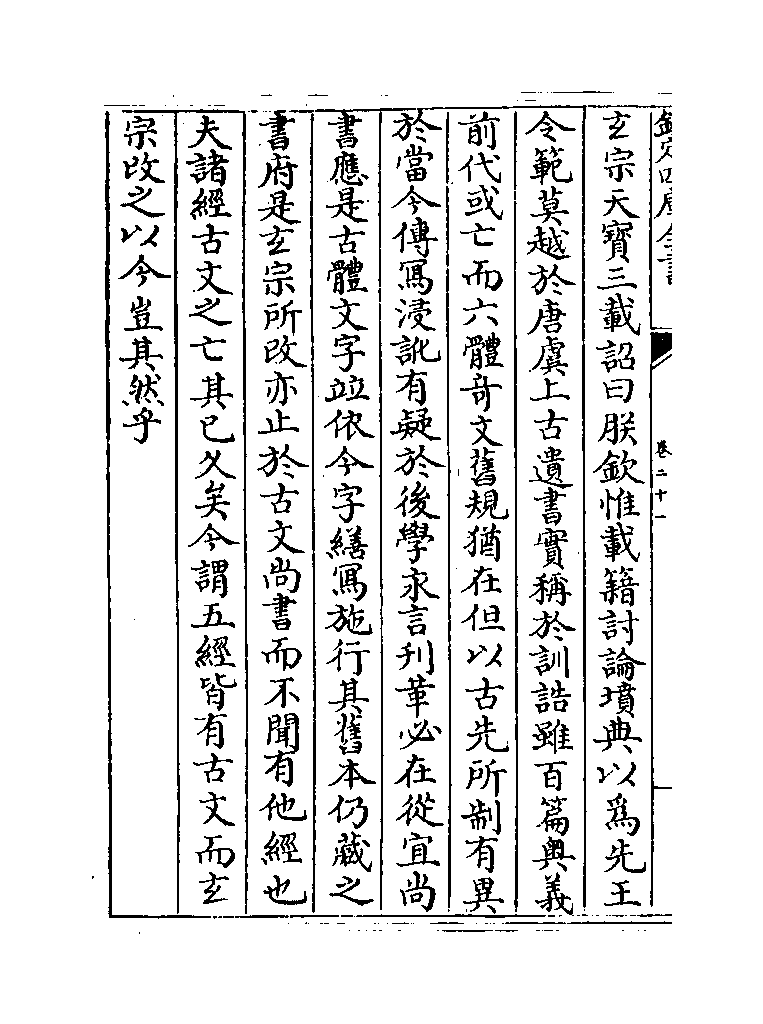 欽定四庫全書
卷二十一
玄宗天寳三載詔曰朕欽惟載籍討論墳典以爲先王
令範莫越於唐虞上古遺書實稱於訓誥雖百篇奥義
前代或亡而六體奇文舊規猶在但以古先所制有異
於當今傳冩浸訛有疑於後學永言刋革必在從宜尚
書應是古體文字竝依今字繕冩施行其舊本仍藏之
書府是玄宗所改亦止於古文尚書而不聞有他經也
夫諸經古文之亡其已久矣今謂五經皆有古文而玄
宗改之以今豈其然乎